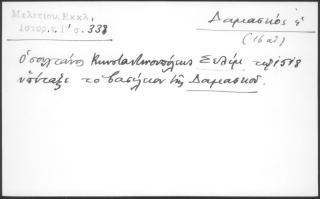 Μελετίου, Εκκλ.
Ἱστορ. τ. Γ' σ. 338
Δαμασκός ἡ
(16 αἰ)
Ὁ σουλτάνος Κωνσταντινουπόλεως Σελὴμ τῷ 1518
ὑπέταξε τὸ βασίλειον τῆς Δαμασκοῦ.